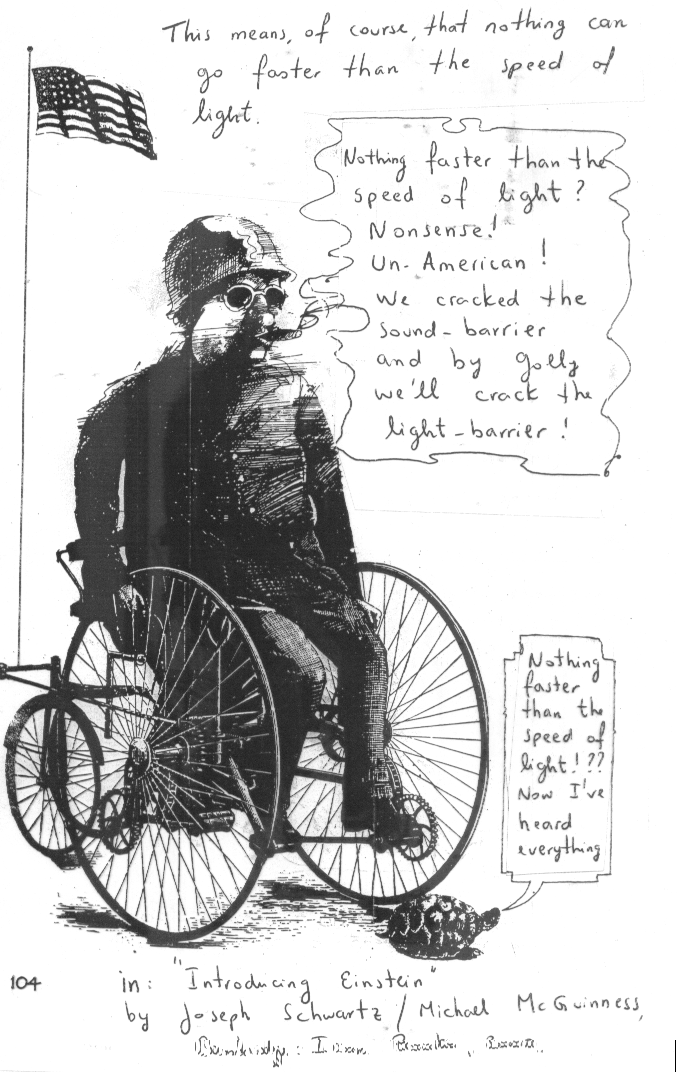 This means, of course, that nothing can
go faster than the speed of
light.
Nothing faster than the
speed of light?
Nonsense!
Un-American!
We cracked the
sound-barrier
and by golly
we'll crack the
light-barrier!
Nothing
faster
than the
speed of
light!??
Now I've
heard
everything
104
in: "Introducing Einstein"
by Joseph Schwartz / Michael McGuinness,